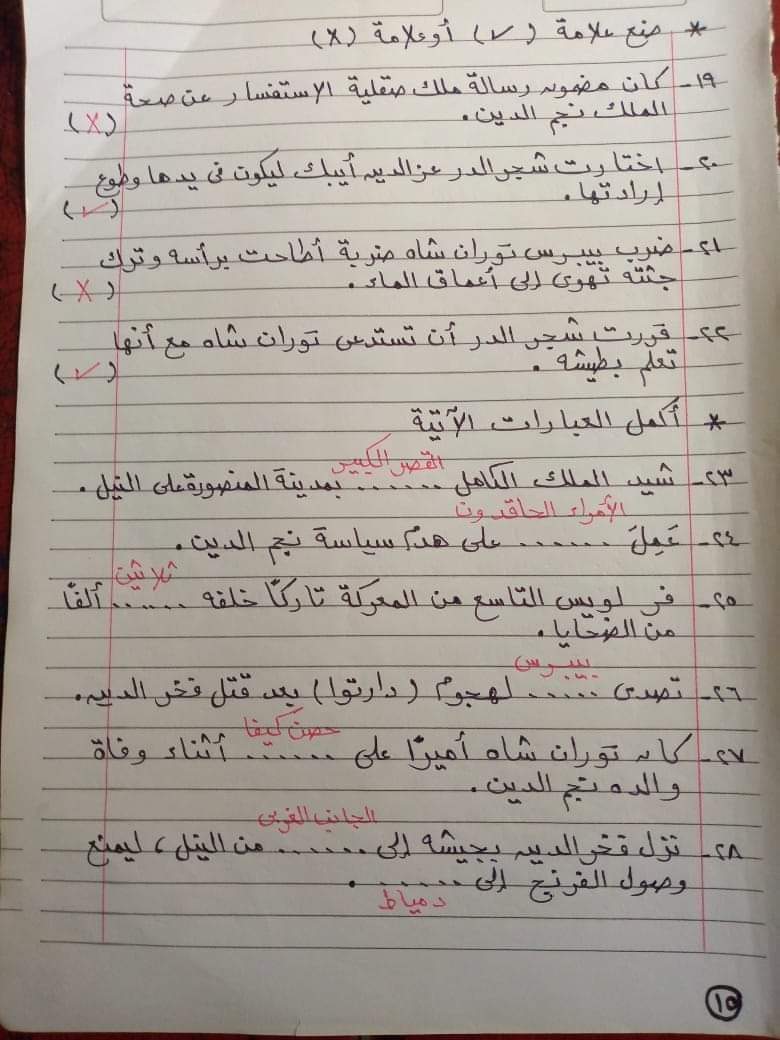 * ضع علامة (✓) أو علامة (X)
١٩- كان مضمون رسالة ملك صقلية الاستفسار عن صحة
الملك نجم الدين. (X)
٢٠- اختارت شجر الدر عز الدين أيبك ليكون فى يدها وطوع
إرادتها. (✓)
٢١- ضرب بيبرس توران شاه ضربة أطاحت برأسه وترك
جثته تهوى إلى أعماق الماء. (X)
٢٢- قررت شجر الدر أن تستدعى توران شاه مع أنها
تعلم بطيشه. (✓)
* أكمل العبارات الآتية
القصر الكبير
٢٣- شيد الملك الكامل ...... بمدينة المنصورة على النيل.
الأمراء الحاقدون
٢٤- عَمِلَ ...... على هدم سياسة نجم الدين.
ثلاثين
٢٥- فر لويس التاسع من المعركة تاركًا خلفه ...... ألفًا
من الضحايا.
بيبرس
٢٦- تصدى ...... لهجوم (دارتوا) بعد قتل فخر الدين.
حصن كيفا
٢٧- كان توران شاه أميرًا على ...... أثناء وفاة
والده نجم الدين.
الجانب الغربى
٢٨- نزل فخر الدين بجيشه إلى ...... من النيل، ليمنع
وصول الفرنج إلى ...... .
دمياط
١٥